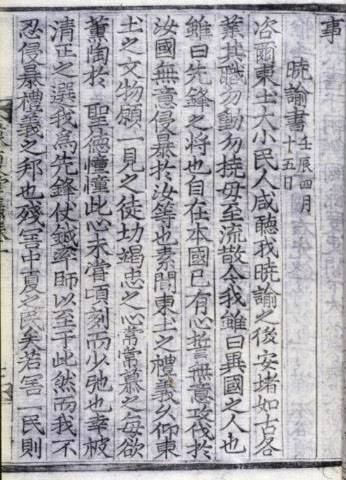 事
曉諭書 壬辰四月十五日
咨爾東土大小民人咸聽我曉諭之後安堵如古各
業其職勿動勿撓毋至流散今我雖曰異國之人也
雖曰先鋒之將也自在本國已有心誓無意攻伐於
汝國無意侵暴於汝等也素聞東土之禮義久仰東
土之文物願一見之徒切竭忠之心常常慕之每欲
薰陶於 聖德憧憧此心未嘗頃刻而少弛也幸被
清正之選我爲先鋒仗鉞率師以至于此然而我不
忍侵暴禮義之邦也殘害中夏之民矣若害一民則